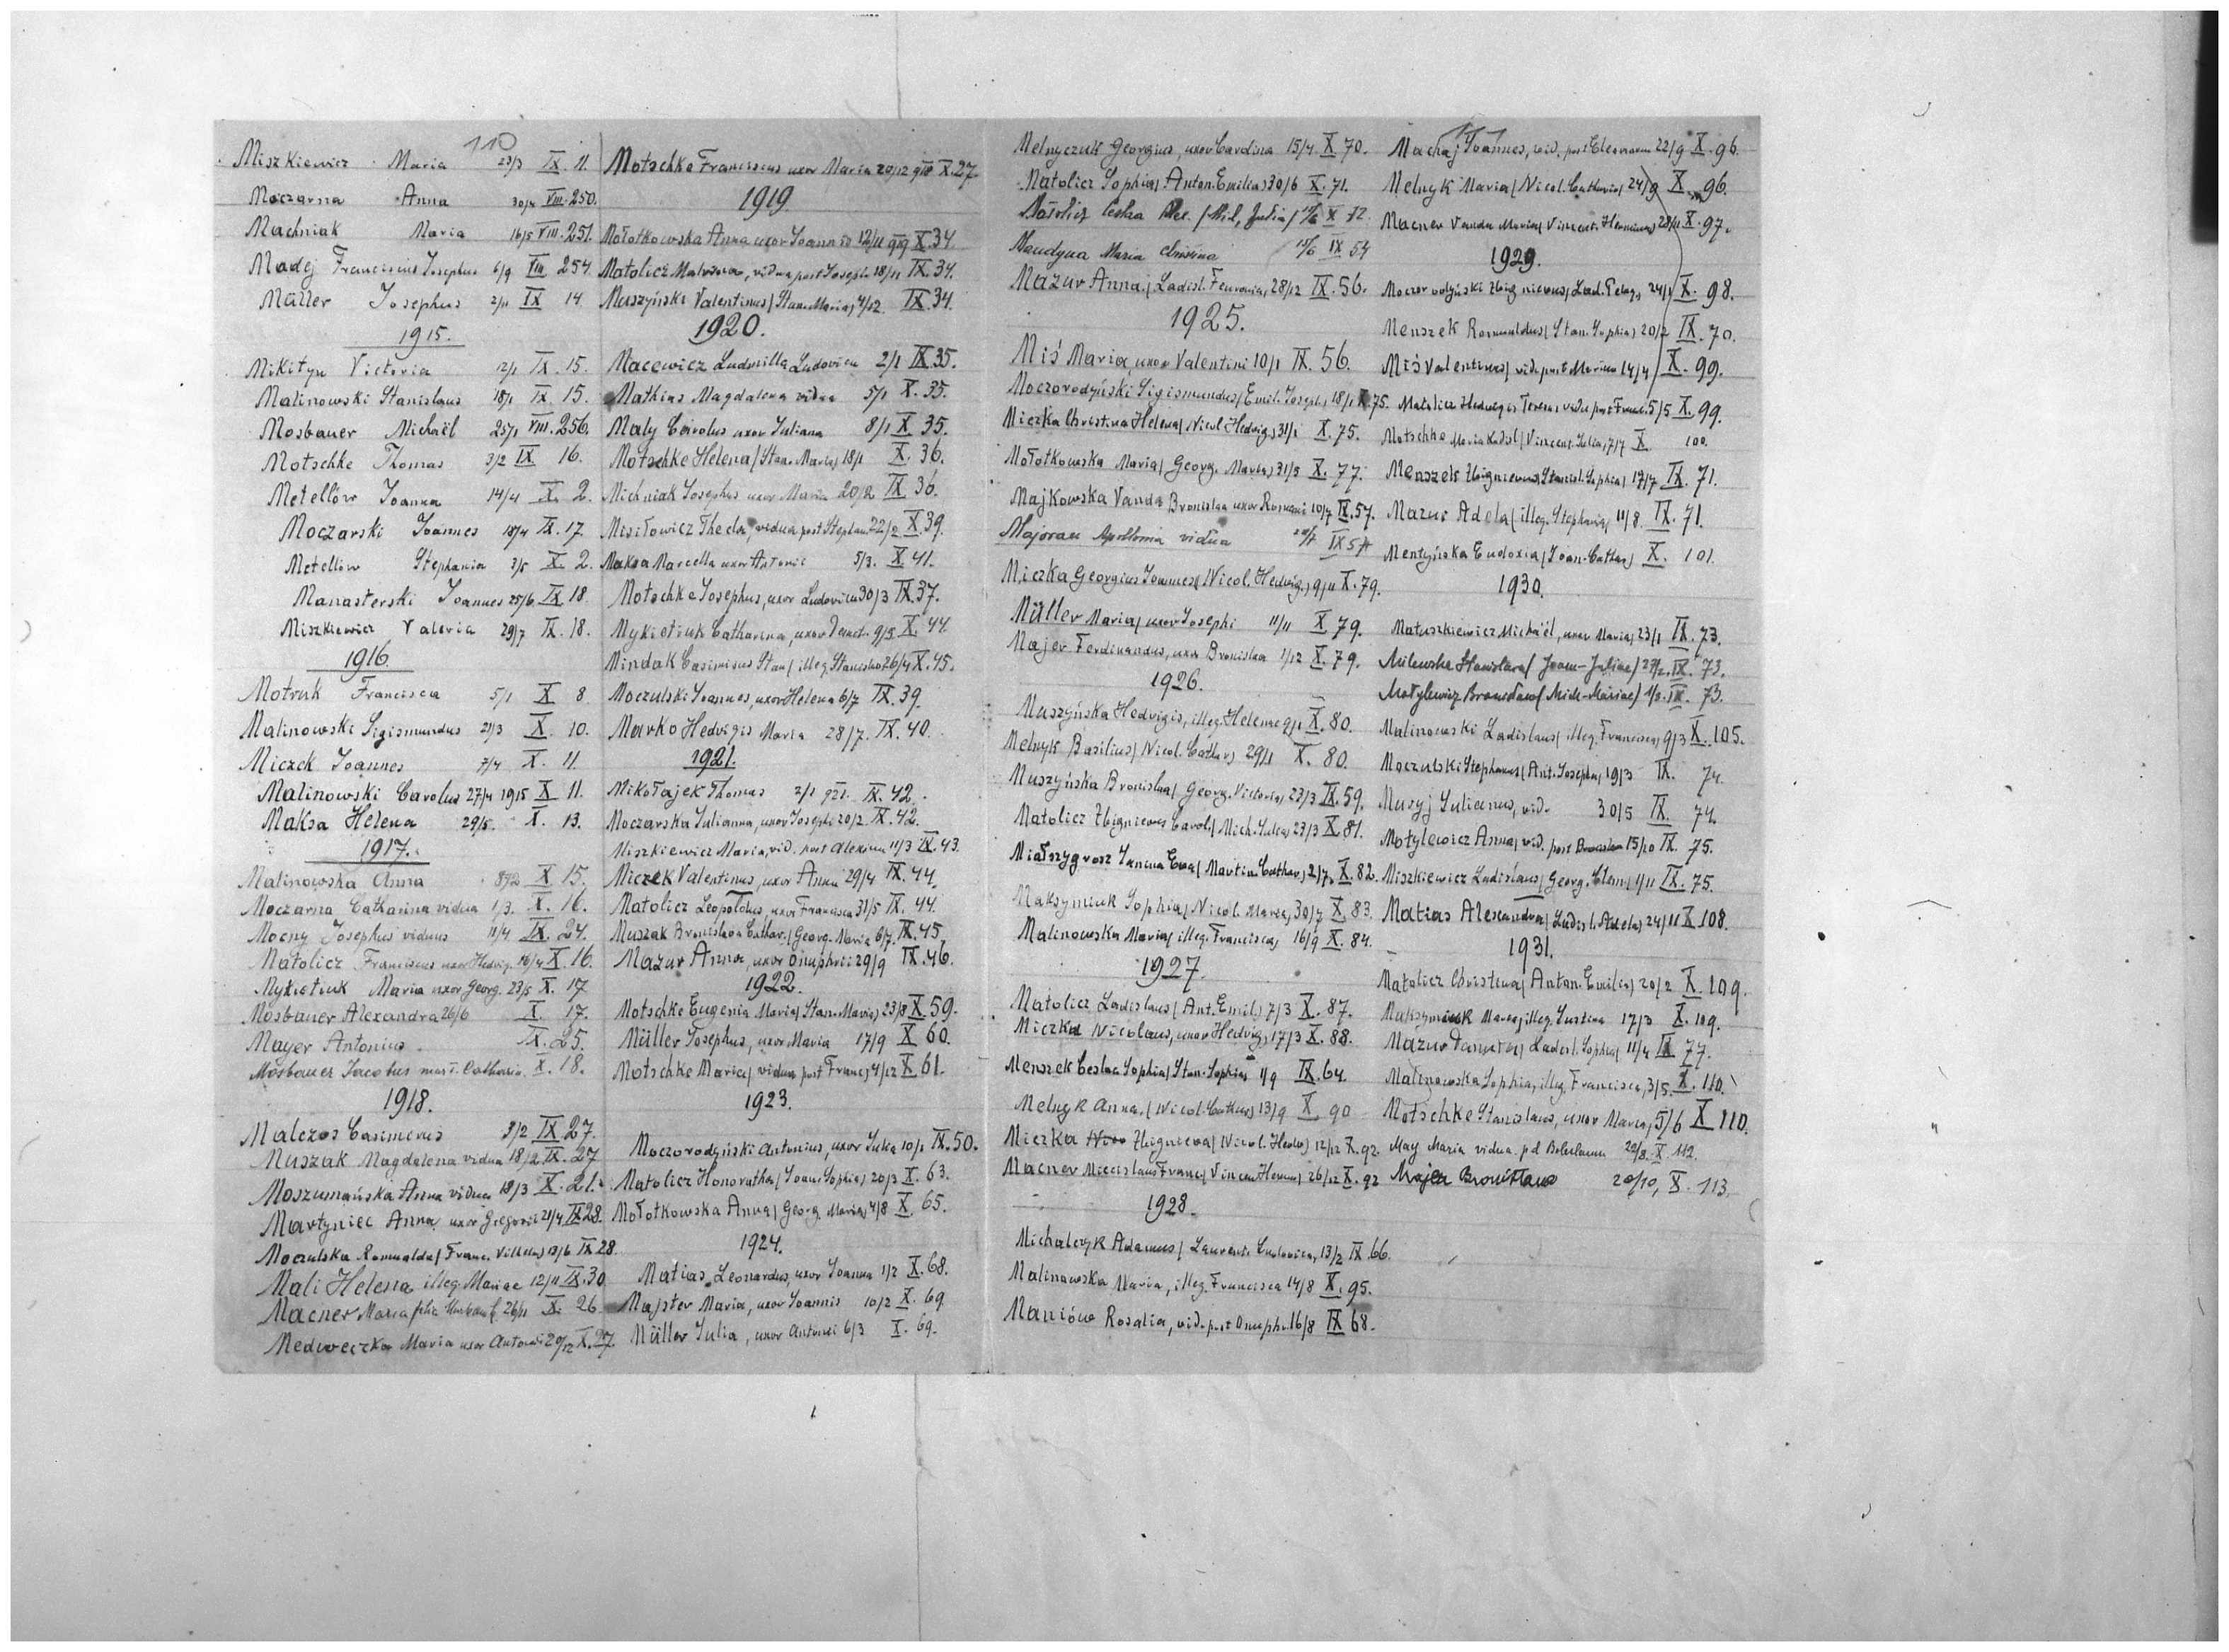 110
Miszkiewicz Maria 23/3 IX. 11.
Moczarna Anna 30/4 VIII. 250.
Machniak Maria 16/5 VIII. 251.
Madej Franciscus Josephus 6/9 VIII 254.
Müller Josephus 2/11 IX 14.
1915.
Mikityn Victoria 12/1 IX. 15.
Malinowski Stanislaus 18/1 IX. 15.
Mosbauer Michaël 25/1 VIII. 256.
Motschke Thomas 3/2 IX 16.
Metellów Joanna 14/4 X. 2.
Moczarski Joannes 18/4 IX. 17.
Metellów Stephania 3/5 X. 2.
Manasterski Joannes 25/6 IX 18.
Miszkiewicz Valeria 29/7 IX. 18.
1916.
Motruk Francisca 5/1 X 8.
Malinowski Sigismundus 21/3 X. 10.
Miczek Joannes 7/4 X. 11.
Malinowski Carolus 27/4 1915 X 11.
Maksa Helena 29/5. X. 13.
1917.
Malinowska Anna X 15.
Moczarna Catharina vidua 1/3. X. 16.
Mocny Josephus viduus 11/4 IX. 24.
Matolicz Franciscus uxor Hedvig. 16/4 X. 16.
Mykietiuk Maria uxor Georg. 23/5 X. 17
Mosbauer Alexandra 26/6 X. 17.
Mayer Antonius IX. 25.
Mosbauer Jacobus X. 18.
1918.
Malczos Casimirus 3/2 IX 27.
Muszak Magdalena vidua 18/2 IX. 27
Moszumańska Anna vidua 18/3 X. 21.
Martyniec Anna uxor Gregorii 21/4 IX 28.
Moczulska Romualda/ Franc. 13/6 IX 28.
Mali Helena illeg. Mariae 12/11 IX. 30
Macner Maria filia 26/11 X. 26.
Medweczka Maria uxor Antonii 20/12 X. 27.
Motschke Franciscus uxor Maria 20/12 918 X. 27.
1919.
Mołotkowska Anna uxor Joannis 12/11 919 X. 34.
Matolicz vidua post Joseph. 18/11 IX. 34.
Muszyński Valentinus/ Stan. Maria/ 4/12. IX. 34.
1920.
Macewicz Ludmilla Ludovica 2/1 IX 35.
Mathias Magdalena vidua 5/1 X. 35.
Maly Carolus uxor Juliana 8/1 X 35.
Motschke Helena/ Stan. Maria/ 18/1 X. 36.
Michniak Josephus uxor Maria 20/2 IX 36.
Misiłowicz Thecla, vidua post Stephan 22/2 X. 39.
Maksa Marcella uxor Antonii 5/3. X. 41.
Motschke Josephus, uxor Ludovica 30/3 IX. 37.
Mykietiuk Catharina, uxor Demet. 9/5 X. 44.
Mindak Casimirus Stan/ illeg. 26/4 X. 45.
Moczulski Joannes, uxor Helena 6/7 IX. 39.
Marko Hedvigis Maria 28/7. IX. 40.
1921.
Mikołajek Thomas 2/1 921. IX. 42.
Moczarska Julianna, uxor Josephi 20/2. IX. 42.
Miszkiewicz Maria, vid. post Alexium 11/3 IX. 43.
Miczek Valentinus, uxor Anna 29/4 IX. 44.
Matolicz Leopoldus, uxor Francisca 31/5 IX. 44.
Muszak Bronislava Cathar./ Georg. Maria 6/7. IX. 45.
Mazur Anna, uxor Onuphrii 29/9 IX. 46.
1922.
Motschke Eugenia Maria/ Stan. Maria/ 23/8 X. 59.
Müller Josephus, uxor Maria 17/9 X 60.
Motschke Maria/ vidua post Franc./ 4/12 X 61.
1923.
Moczorodyński Antonius, uxor Julia 10/1 IX. 50.
Matolicz Honoratha/ Joan. Sophia/ 20/3 X. 63.
Mołotkowska Anna/ Georg. Maria/ 4/8 X. 65.
1924.
Matias Leonardus, uxor Joanna 1/2 X. 68.
Majster Maria, uxor Joannis 10/2 X. 69.
Müller Julia, uxor Antonii 6/3 X. 69.
Melnyczuk Georgius, uxor Carolina 15/4. X. 70.
Matolicz Sophia/ Anton. Emilia/ 30/6 X. 71.
X 72.
Maria Christina 14/6 IX 54
Mazur Anna/ Ladisl. Feuronia, 28/12 IX. 56.
1925.
Miś Maria, uxor Valentini 10/1 IX. 56.
Moczorodyński Sigismundus/ Emil. Joseph./ 18/1 X. 75.
Miczka Christina Helena/ Nicol. Hedvig./ 31/1 X. 75.
Mołotkowska Maria/ Georg. Maria/ 31/5 X. 77.
Majkowska Vanda Bronislaa uxor Romani 10/7 IX. 57.
Majoran Apollonia vidua IX 57
Miczka Georgius Joannes/ Nicol. Hedvig./ 9/11 X. 79.
Müller Maria/ uxor Josephi 11/11 X. 79.
Majer Ferdinandus, uxor Bronislaa 1/12 X. 79.
1926.
Muszyńska Hedvigis, illeg. Helenae 9/1 X. 80.
Melnyk Basilius/ Nicol. Cathar/ 29/1 X. 80.
Muszyńska Bronislaa/ Georg. Victoria/ 23/3 IX. 59.
Matolicz Zbigniews Carol/ Mich. Julia/ 23/3 X. 81.
Miałszygrosz Janina Eva/ Martin. Cathar./ 2/7. X. 82.
Maksymiuk Sophia/ Nicol. Maria/ 30/7 X. 83.
Malinowska Maria/ illeg. Francisca/ 16/9 X. 84.
1927.
Matolicz Ladislaus/ Ant. Emil./ 7/3 X. 87.
Miczka Nicolaus, uxor Hedvig/ 17/3 X. 88.
Menszek Ceslaa Sophia/ Stan. Sophia/ 1/9 IX. 64.
Melnyk Anna/ Nicol. Cathar/ 13/9 X. 90
Miczka Zbigniewa/ Nicol. Hedv/ 12/12 X. 92.
Macner Miecislaus Franc/ Vincen. Hermin/ 26/12 X. 92
1928.
Michalczyk Adamus/ Laurent. Ludovica, 13/2 IX 66.
Malinowska Maria, illeg. Francisca 14/8 X. 95.
Maniów Rosalia, vid. post Onuph. 16/8 IX 68.
Machaj Joannes, vid. post 22/9 X. 96.
Melnyk Maria/ Nicol. Catharin/ 24/9 X. 96.
Macner Vanda Maria/ Vincent. Hermina/ 28/11 X. 97.
1929.
Moczorodyński Zbigniewus, Lad. Pelag, 24/1 X. 98.
Menszek Romualdus/ Stan. Sophia/ 20/2 IX. 70.
Miś Valentinus/ vid. post Mariam 14/4 X. 99.
Matolicz Hedvigis Teresa vidua post Franc. 5/5 X. 99.
Motschke Maria Ladisl/ Vincent. Julia/ 7/7 X. 100.
Menszek Zbigniewus/ Stanisl. Sophia/ 17/7 IX. 71.
Mazur Adela/ illeg. Stephania/ 11/8. IX. 71.
Mentyńska Eudoxia/ Joan. Cathar/ X. 101.
1930.
Matuszkiewicz Michaël, uxor Maria, 23/1 IX. 73.
Milewska Stanislava/ Joan - Juliae/ 27/2. IX. 73.
Motylewicz Bronislava/ Mich - Mariae/ 1/3. IX. 73.
Malinowski Ladislaus/ illeg. Francisca, 9/3 X. 105.
Moczulski Stephanus/ Ant. Josepha/ 19/3 IX. 74.
Musyj Julianus, vid. 30/5 IX. 74.
Motylewicz Anna, vid. post 15/10 IX. 75.
Miszkiewicz Ladislaus/ Georg. Clem/ 1/11 IX. 75.
Matias Alexandra/ Ladisl. Adela/ 24/11 X 108.
1931.
Matolicz Christina/ Anton. Emilia/ 20/2 X. 109.
Maksymiuk Maria, illeg. Justina 17/3 X. 109.
Mazur Danuta/ Ladisl. Sophia/ 11/4 IX 77.
Malinowska Sophia, illeg. Francisca, 3/5. X. 110.
Motschke Stanislaus, uxor Maria, 5/6 X 110.
May Maria vidua pd Boleslaum 22/8. X. 112.
Majer Bronisława 20/10, X. 113.